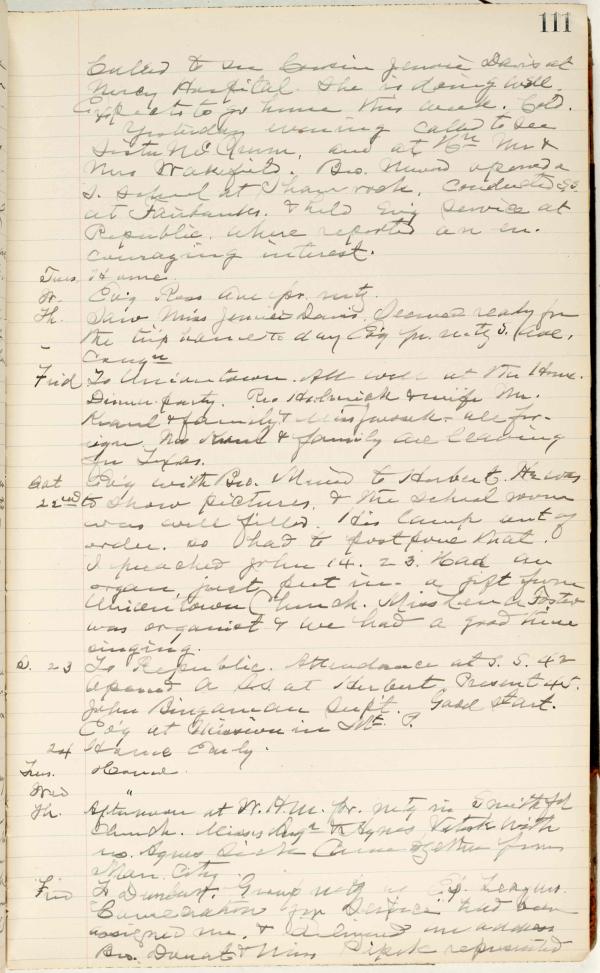 111
Called to see Cousin Jennie Davis at
Mercy Hospital. She is doing well.
Expects to go home this week. Cold.
Yesterday evening called to see
Sister Mc and at Mr &
Mrs Wakefield. Bro. opened a
S. School at Shamrock, conducted S.S.
at Fairbanks. & held Ev'g service at
Republic. where reported an en-
couraging interest.
Tues. Home.
W. Ev'g Ross Ave pr. mtg.
Th. Saw Miss Jennie Davis. Seemed ready for
the trip home to day Ev'g pr. mtg S. Ave.
Cong'n
Frid To Uniontown. All well at the Home.
Dinner party. Rev & wife Mr.
& family & Miss all for-
eign. Mr & family are leaving
for Texas.
Sat Ev'g with Bro. to Herbert. He was
22nd to show pictures, & the school room
was well filled. His lamp out of
order. so had to postpone that.
I preached John 14. 23. Had an
organ, just put in - a gift from
Uniontown Church. Miss Lena Foster
was organist & we had a good time
singing.
S. 23 To Republic. Attendance at S.S. 42
Opened a S.S. at Herbert. Present 45.
John Bingaman Supt. Good start.
Ev'g at Mission in Mt. P.
24 Home Early.
Tues. Home.
Wed "
Th. Afternoon at W.H.M. pr. mtg in Smithf'd
Church. Misses & Agnes with
us. Agnes
City
Frid To Dunbar. Group mtg of Leagues.
"Consecration for Service" had been
assigned me, & delivered an address
Bro. & Miss represented